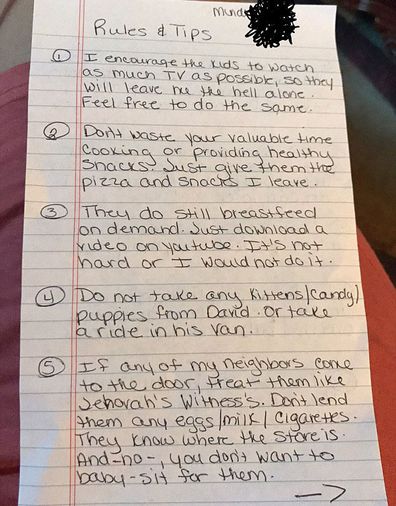 Rules & Tips
① I encourage the kids to watch
as much TV as possible, so they
will leave me the hell alone.
Feel free to do the same.
② Don't waste your valuable time
cooking or providing healthy
snacks. Just give them the
pizza and snacks I leave.
③ They do still breastfeed
on demand. Just download a
video on youtube. It's not
hard or I would not do it.
④ Do not take any Kittens/Candy/
puppies from David. Or take
a ride in his van.
⑤ If any of my neighbors come
to the door, treat them like
Jehovah's Witness's. Don't lend
them any eggs/milk/cigarettes.
They know where the store is.
And-no-, you don't want to
baby-sit for them.